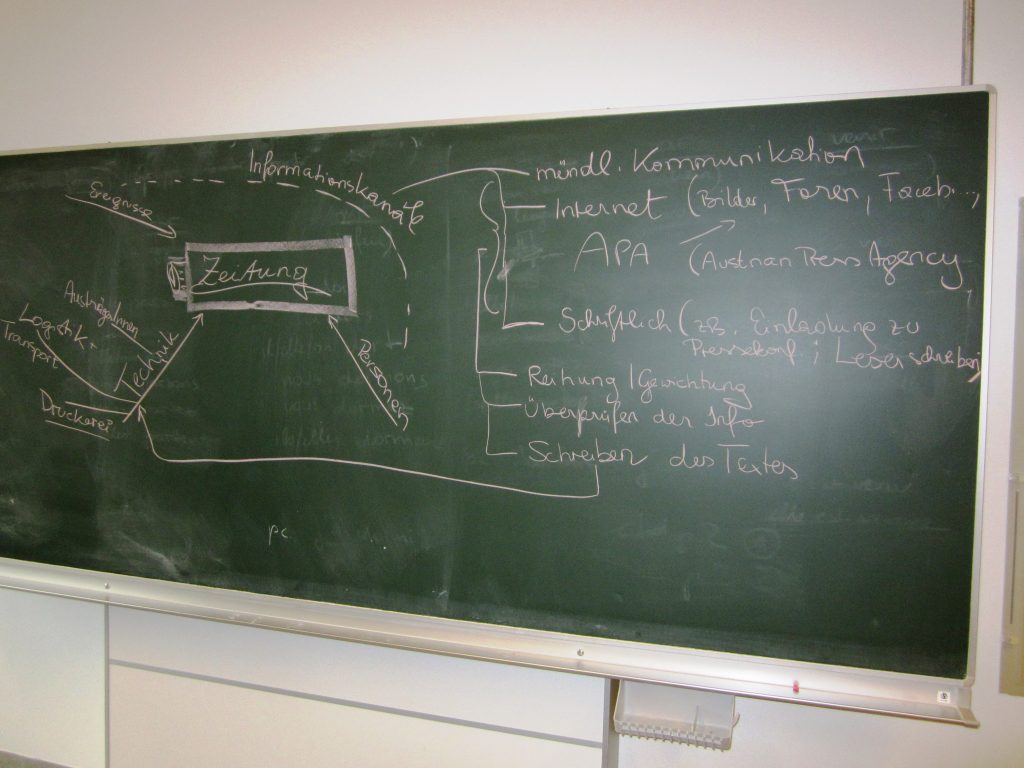 Informationskanäle
Ereignisse
Zeitung
AusträgerInnen
Logistik,
Transport
Technik
Druckerei
Personen
mündl. Kommunikation
Internet (Bilder, Foren, Faceb...,
APA (Austrian Press Agency
Schriftlich (zB. Einladung zu
Pressekonf; Leserschreiben)
Reihung / Gewichtung
Überprüfen der Info
Schreiben des Textes
pc